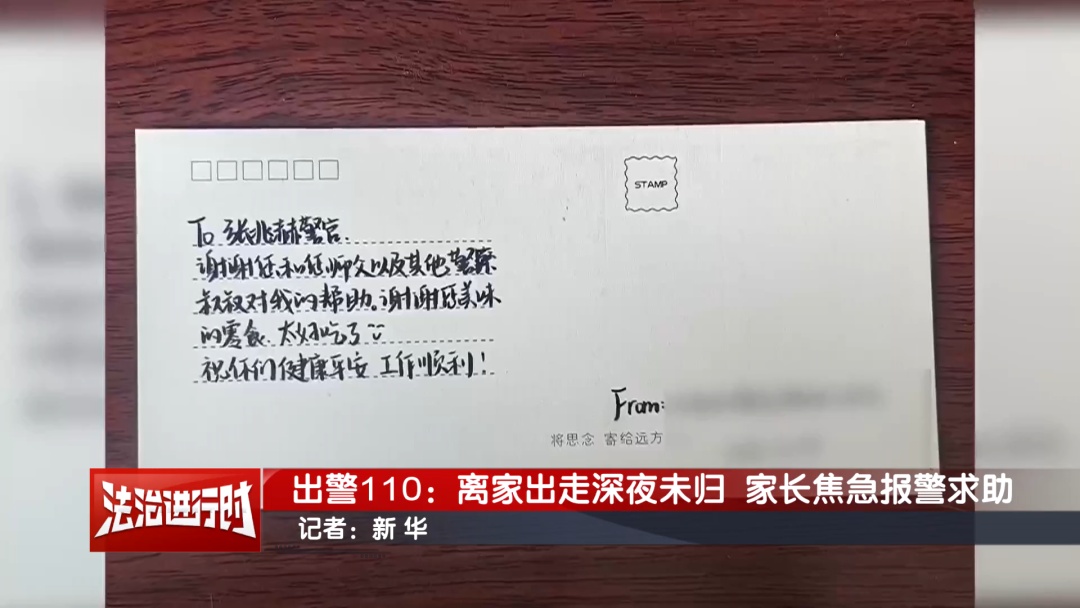 STAMP
To 张兆赫警官.
谢谢您和您师父以及其他警察
叔叔对我的帮助。谢谢您美味
的零食.太好吃了
祝你们健康平安 工作顺利!
From:
将思念 寄给远方
法治进行时
出警110：离家出走深夜未归 家长焦急报警求助
记者：新 华